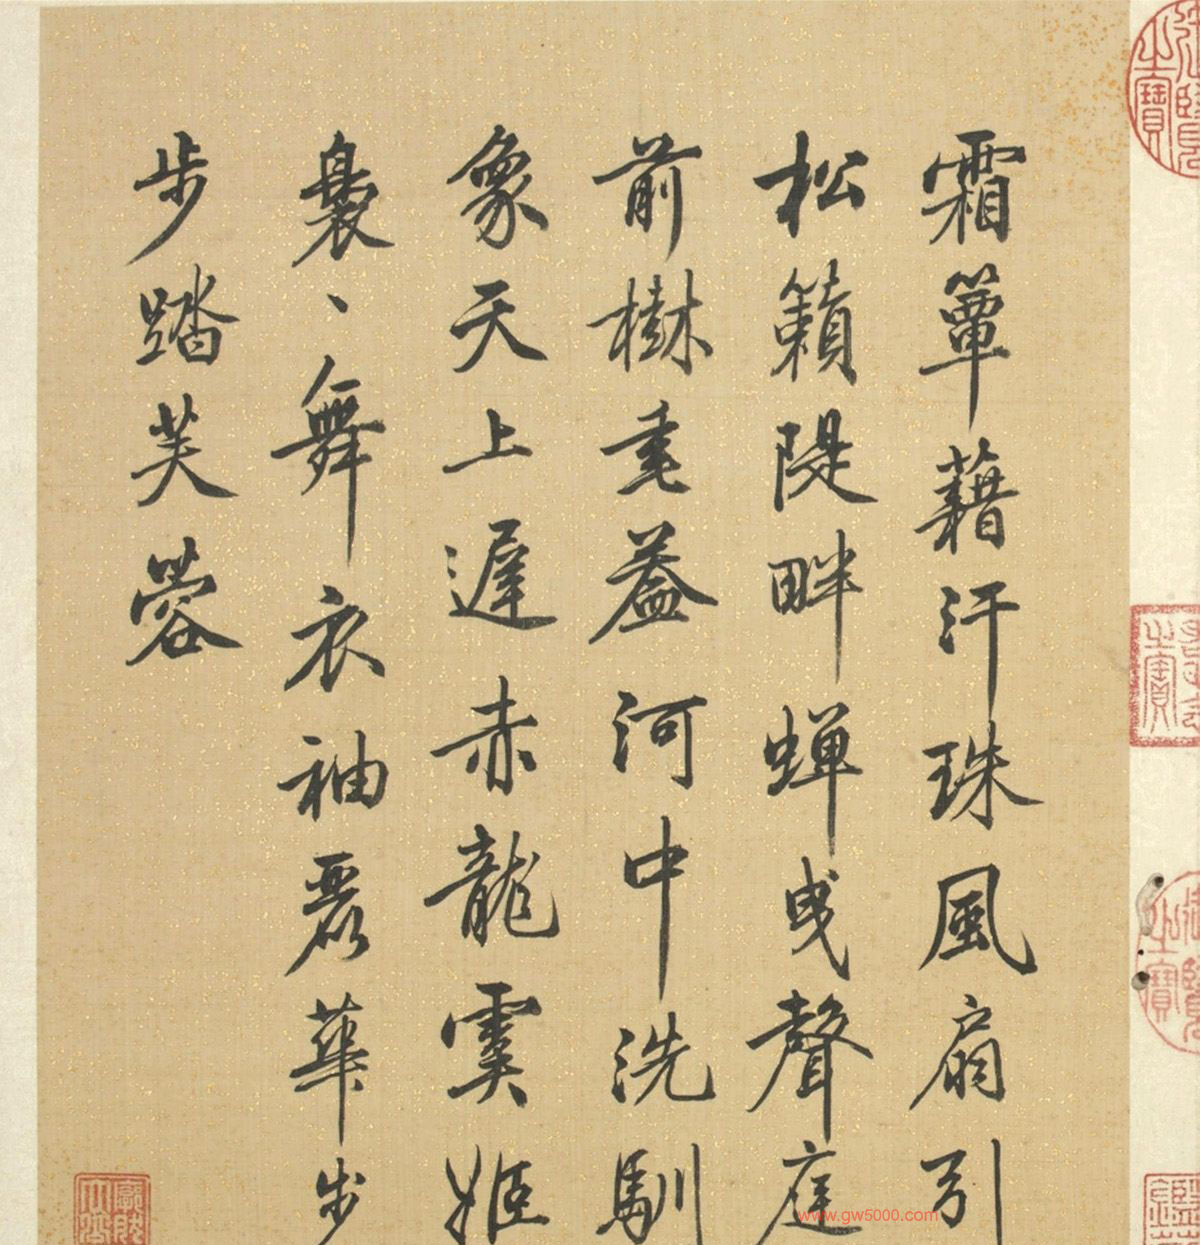 霜簟藉汗珠風扇引
松籟隄畔蟬曳聲庭
前樹重葢河中洗馴
象天上遲赤龍虞姬
裊、舞衣袖麗華步
步踏芙蓉
之寶
之寶
之寶
www.gw5000.com